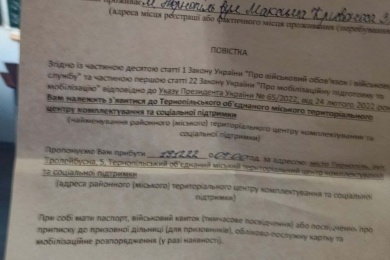 (адреса місця реєстрації або фактичного місця проживання (перебування
ПОВІСТКА
Згідно із частиною десятою статті 1 Закону України "Про військовий обов'язок і військову
службу" та частиною першою статті 22 Закону України "Про мобілізаційну підготовку та
мобілізацію" відповідно до Указу Президента України № 65/2022, від 24 лютого 2022
Вам належить з'явитися до Тернопільського об'єднаного міського територіального
центру комплектування та соціальної підтримки
(найменування районного (міського) територіального центру комплектування та
соціальної підтримки)
Пропонуємо Вам прибути год за адресою: місто Тернопіль, вул.
Тролейбусна, 5, Тернопільський об'єднаний міський територіальний центр комплектування
та соціальної підтримки
(адреса районного (міського) територіального центру комплектування та соціальної
підтримки)
При собі мати паспорт, військовий квиток (тимчасове посвідчення) або посвідчення про
приписку до призовної дільниці (для призовників), обліково-послужну картку та
мобілізаційне розпорядження (у разі наявності).